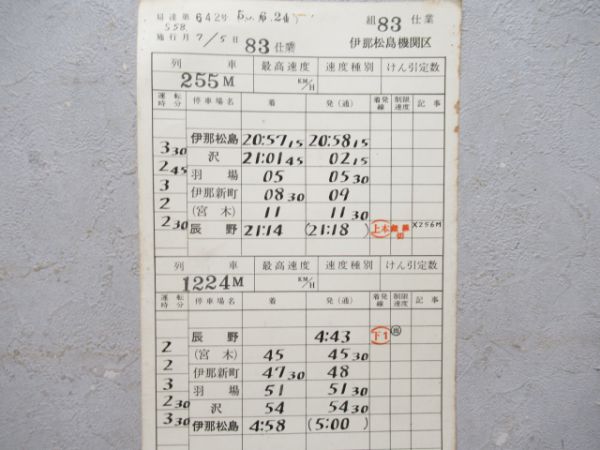 局達第 642号
S58.
組 83 仕業
施行月 7/5日 83仕業 伊那松島機関区
列車 最高速度 速度種別 けん引定数
255M KM/H
運転時分 停車場名 着 発(通) 着発線 制限速度 記事
伊那松島 20:57 15 20:58 15
3 30 沢 21:01 45 02 15
2 45 羽場 05 05 30
3 伊那新町 08 30 09
2 (宮木) 11 11 30
2 30 辰野 21:14 (21:18) 上本 X256M
列車 最高速度 速度種別 けん引定数
1224M KM/H
運転時分 停車場名 着 発(通) 着発線 制限速度 記事
辰野 4:43 下1
2 (宮木) 45 45 30
2 伊那新町 47 30 48
3 羽場 51 51 30
2 30 沢 54 54 30
3 30 伊那松島 4:58 (5:00)